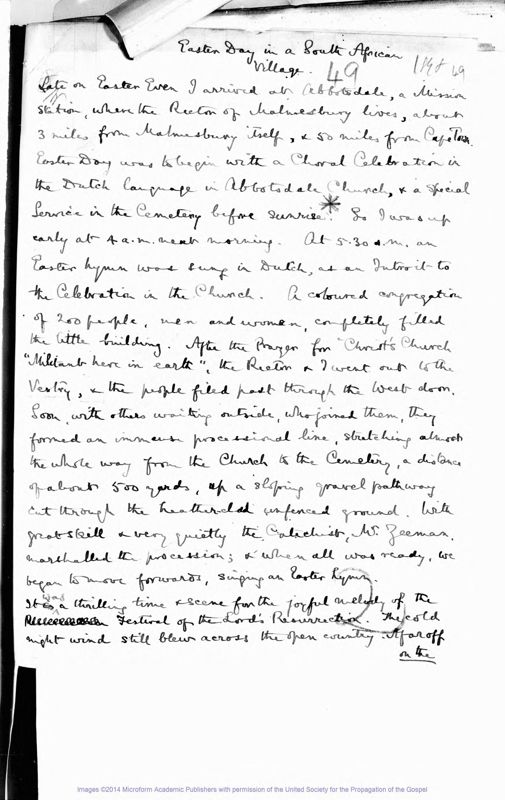 Easter Day in a South African
Village.
49
Late on Easter Even I arrived at Abbotsdale, a Mission
Station, where the Rector of Malmesbury lives, about
3 miles from Malmesbury itself, & 50 miles from Cape Town.
Easter Day was to begin with a Choral Celebration in
the Dutch language in Abbotsdale Church, & a special
Service in the Cemetery before sunrise. So I was up
early at 4 a.m. next morning. At 5.30 a.m. an
Easter hymn was sung in Dutch, as an Introit to
the Celebration in the Church. A coloured congregation
of 200 people, men and women, completely filled
the little building. After the Prayer for "Christ's Church
"Militant here in earth", the Rector & I went out to the
Vestry, & the people filed past through the West door.
Soon, with others waiting outside, who joined them, they
formed an immense processional line, stretching almost
the whole way from the Church to the Cemetery, a distance
of about 500 yards, up a sloping gravel pathway
cut through the heather-clad unfenced ground. With
great skill & very quietly the Catechist, Mr. Zeeman,
marshalled the procession; & when all was ready, we
began to move forwards, singing an Easter hymn.
It was a thrilling time & scene for the joyful melody of the
Festival of the Lord's Resurrection. The cold
night wind still blew across the open country. Afar off
on the
Images ©2014 Microform Academic Publishers with permission of the United Society for the Propagation of the Gospel